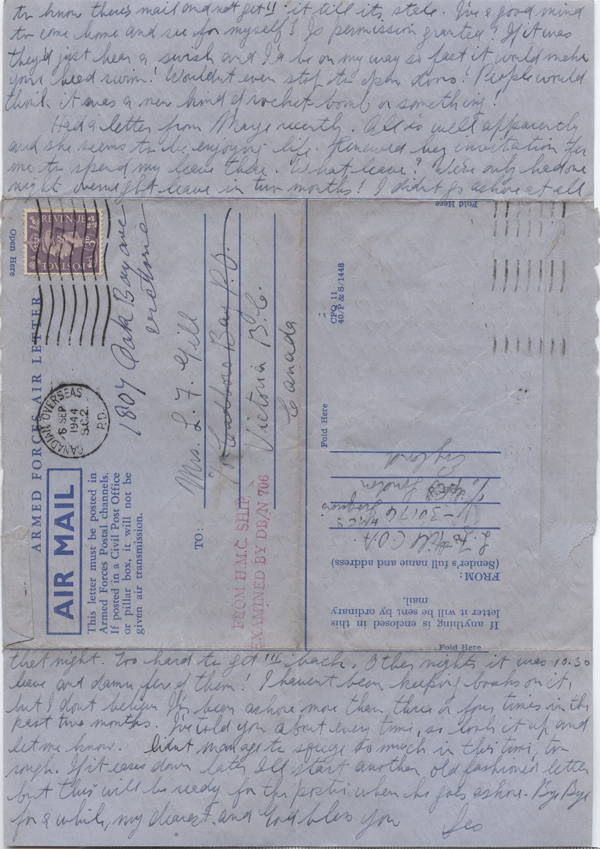 to know there's mail and not get!! it till it's stale. I've a good mind
to come home and see for myself! Is permission granted? If it was
they'd just hear a swish and I'd be on my way so fast it would make
your head swim! Wouldn't even stop to open doors! People would
think it was a new kind of rocket bomb or something!
Had a letter from Marge recently. All is well apparently
and she seems to be enjoying life. Renewed her invitation for
me to spend my leave there. What leave? We've only had one
night overnight leave in two months! I didn't go ashore at all
Open Here
REVENUE
3D
POSTAGE
CANADIAN OVERSEAS
6 SEP
1944
S.C.2.
P.D.
ARMED FORCES AIR LETTER
AIR MAIL
This letter must be posted in
Armed Forces Postal channels.
If posted in a Civil Post Office
or pillar box, it will not be
given air transmission.
1807 Oak Bay ave
Victoria
TO:
Mrs. L. F. Gill
Cadboro Bay P.O.
Victoria B.C.
Canada
FROM H.M.C. SHIP
EXAMINED BY DB/N 706
Fold Here
CPO 11
40/P & S/1448
Fold Here
If anything is enclosed in this
letter it will be sent by ordinary
mail.
FROM:
(Sender's full name and address)
L. F. Gill C.O.A.
V-30176
H.M.C.S.
London
England
Fold Here
that night. Too hard to get!!! back. Other nights it was 10.30
leave and damn few of them! I haven't been keeping books on it,
but I don't believe I've been ashore more than three or four times in the
past two months. I've told you about every time, so look it up and
let me know. Didn't manage to squeeze so much in this time, too
rough. If it eases down later I'll start another, old fashioned letter
but this will be ready for the postie when he goes ashore. Bye Bye
for a while, my dearest and God bless you Les